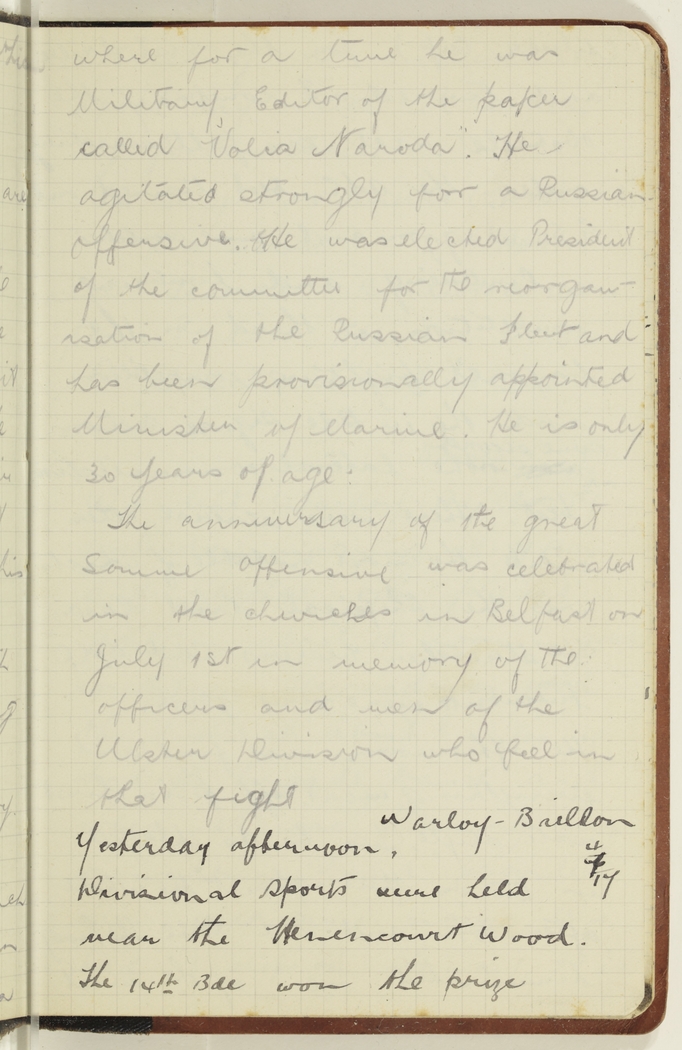 where for a time he was
Military Editor of the paper
called "Volia Naroda". He
agitated strongly for a Russian
offensive. He was elected President
of the committee for the reorgan-
isation of the Russian Fleet and
has been provisionally appointed
Minister of Marine. He is only
30 years of age.
The anniversary of the great
Somme offensive was celebrated
in the churches in Belfast on
July 1st in memory of the
officers and men of the
Ulster Division who fell in
that fight
Warloy-Baillon
Yesterday afternoon,
Divisional Sports were held
near the Henencourt Wood.
The 14th Bde won the prize